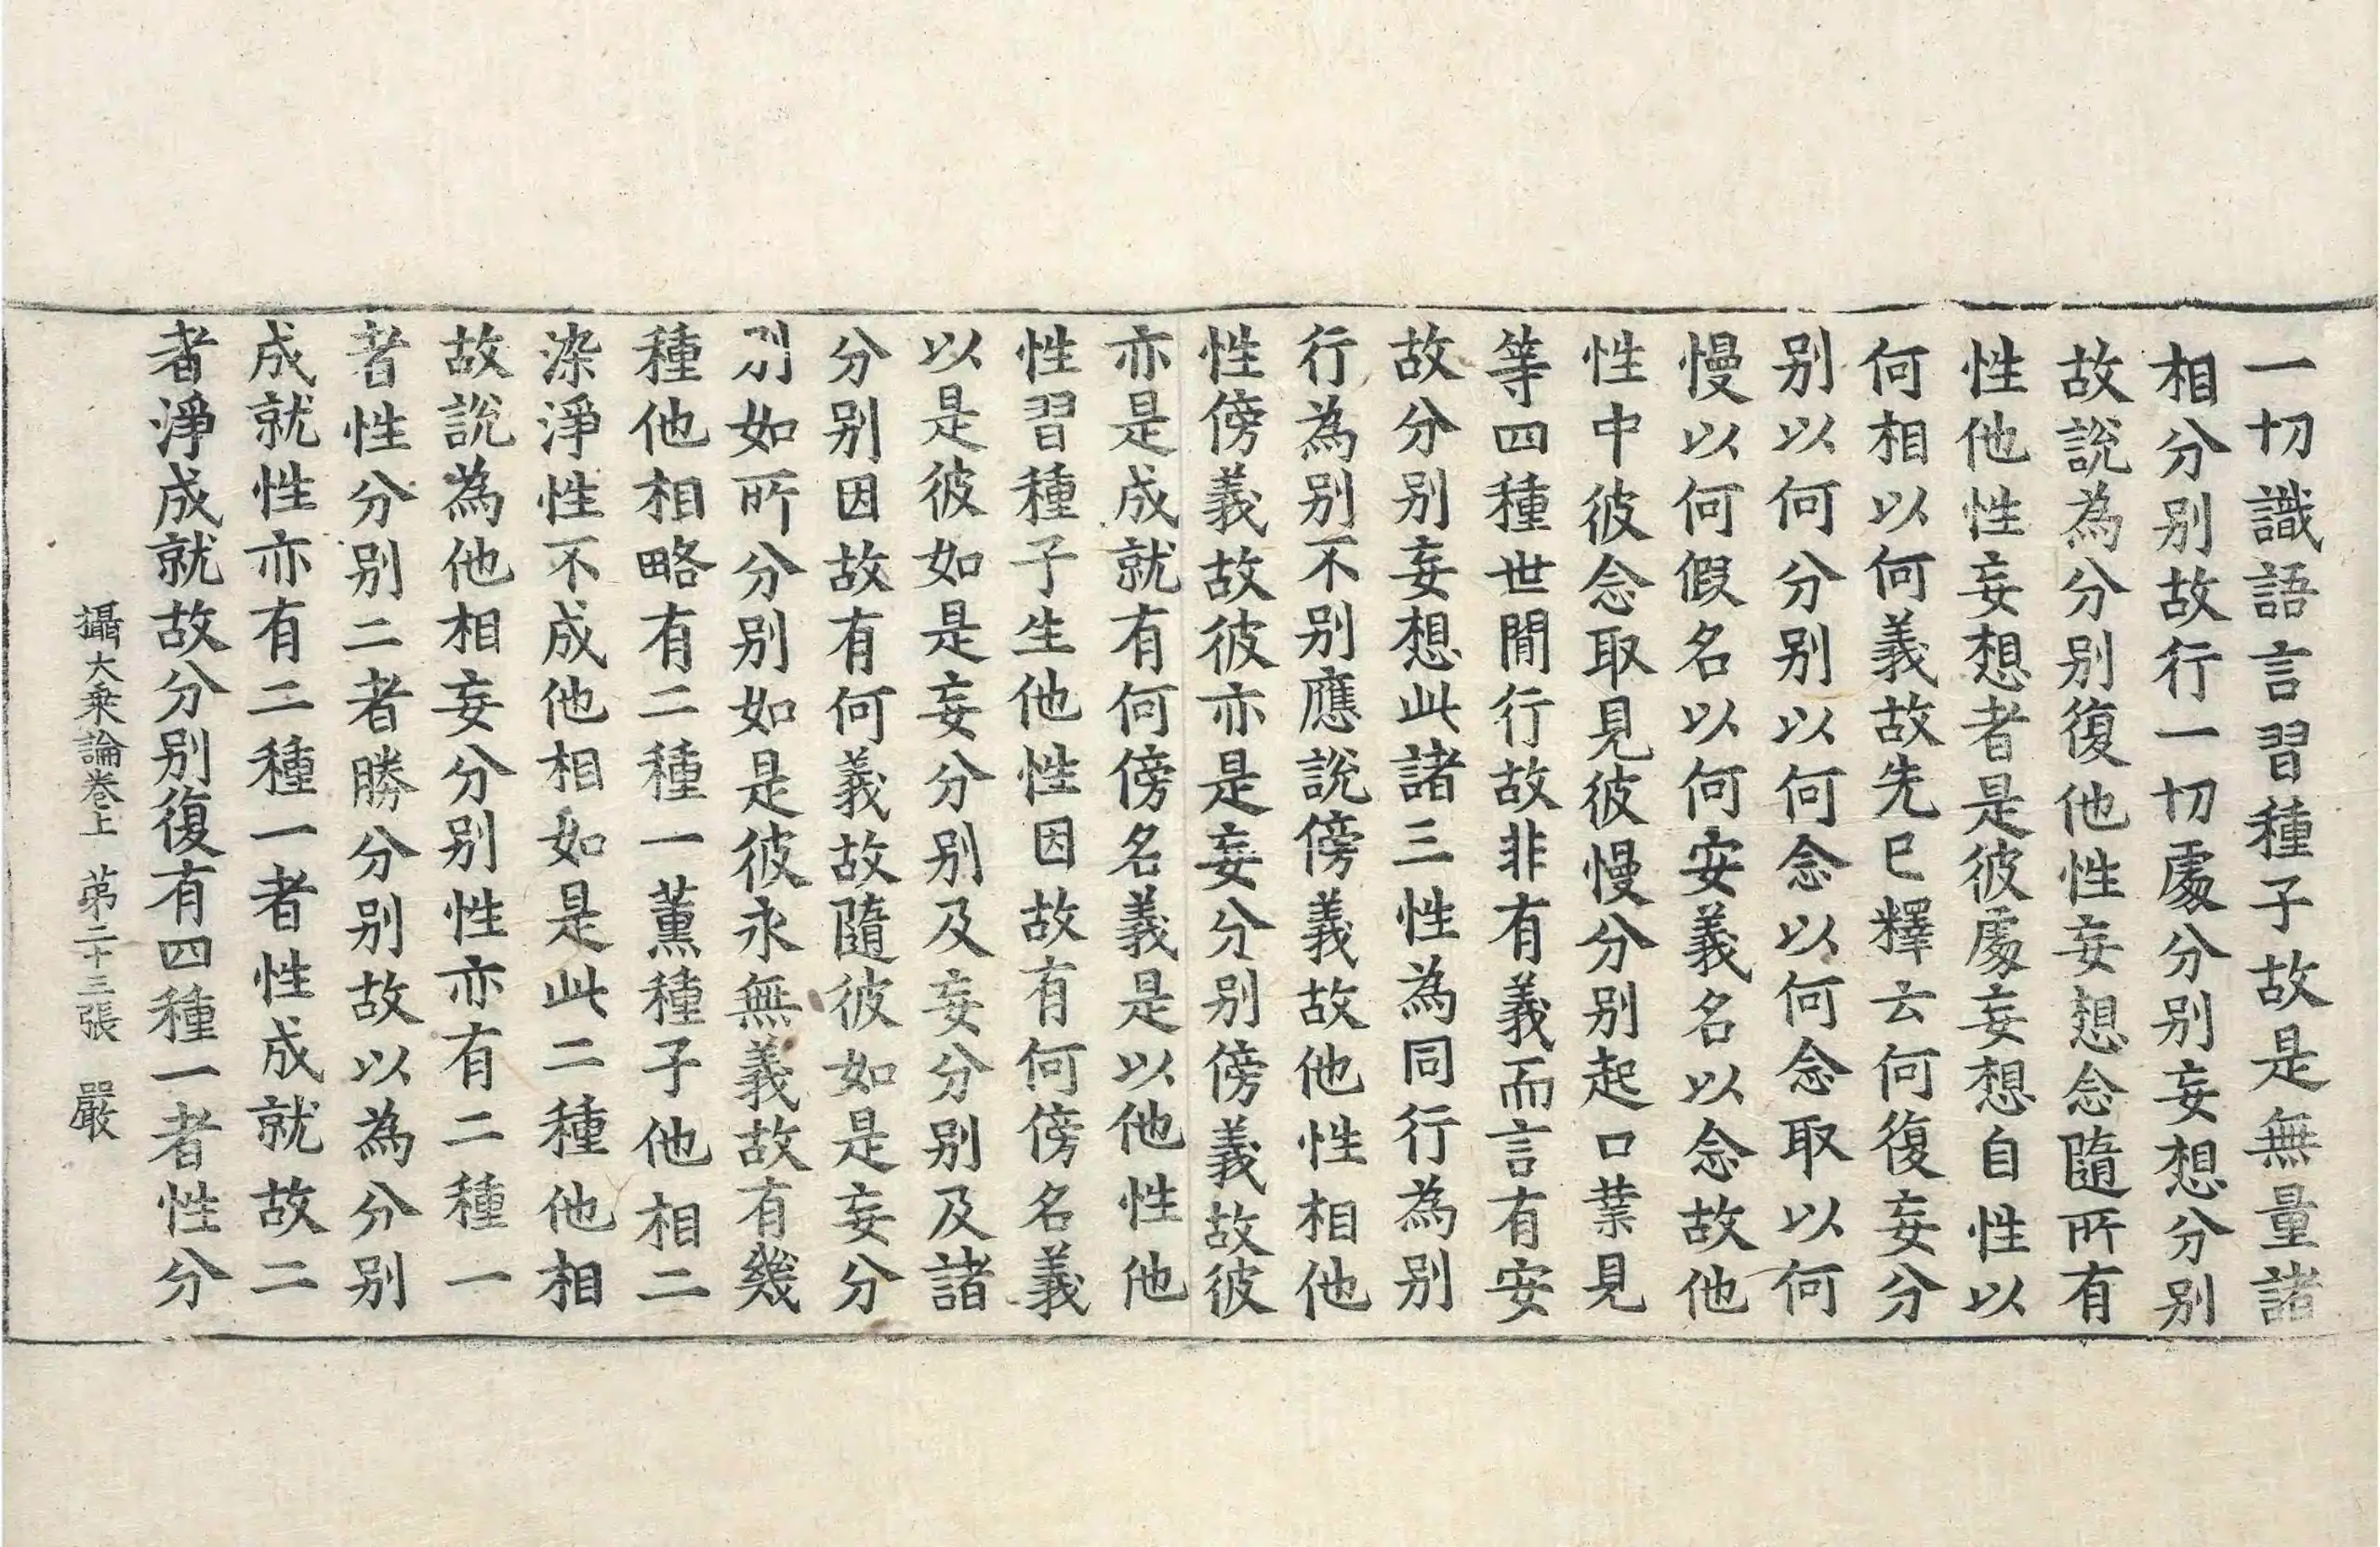 一切識語言習種子故是無量諸
相分别故行一切處分别妄想分别
故說為分别復他性妄想念隨所有
性他性妄想者是彼處妄想自性以
何相以何義故先已釋云何復妄分
别以何分别以何念以何念取以何
慢以何假名以何安義名以念故他
性中彼念取見彼慢分别起口業見
等四種世間行故非有義而言有安
故分别妄想此諸三性為同行為别
行為别不别應說傍義故他性相他
性傍義故彼亦是妄分别傍義故彼
亦是成就有何傍名義是以他性他
性習種子生他性因故有何傍名義
以是彼如是妄分别及妄分别及諸
分别因故有何義故隨彼如是妄分
别如所分别如是彼永無義故有幾
種他相略有二種一薰種子他相二
染淨性不成他相如是此二種他相
故說為他相妄分别性亦有二種一
者性分别二者勝分别故以為分别
成就性亦有二種一者性成就故二
者淨成就故分别復有四種一者性分
攝大乗論卷上　苐二十三張　嚴